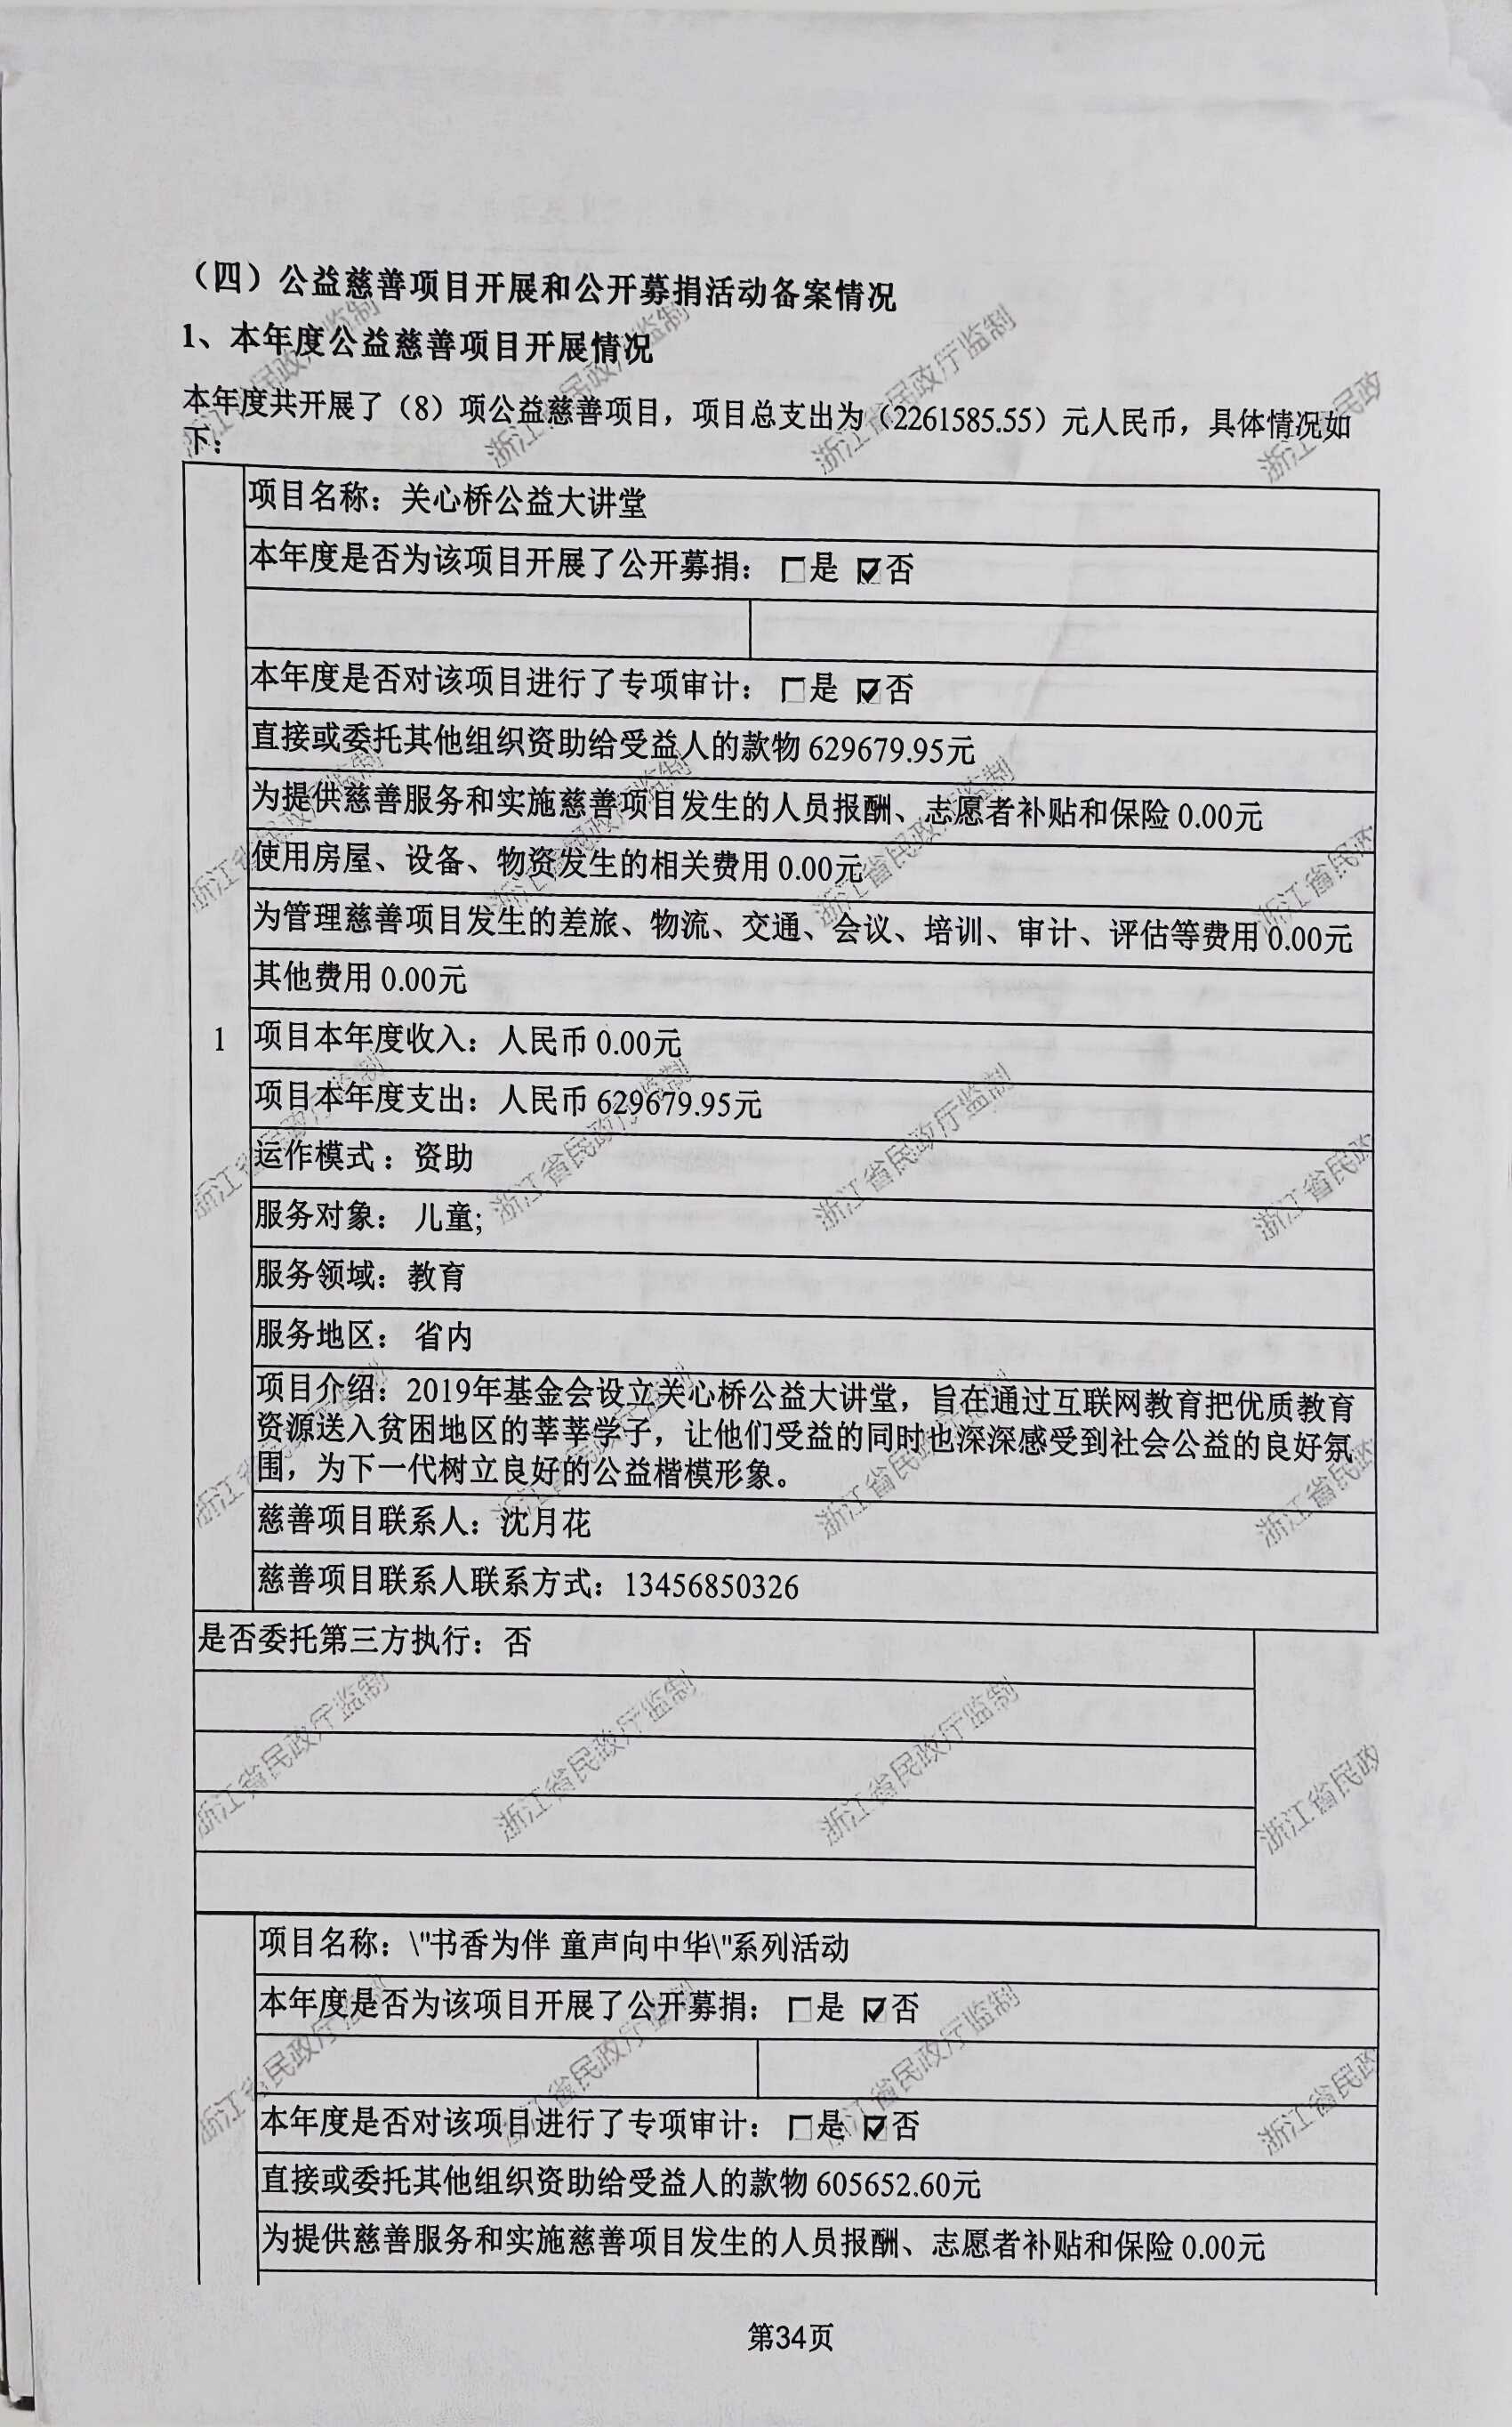 （四）公益慈善项目开展和公开募捐活动备案情况
1、本年度公益慈善项目开展情况
本年度共开展了（8）项公益慈善项目，项目总支出为（2261585.55）元人民币，具体情况如
下：
项目名称：关心桥公益大讲堂
本年度是否为该项目开展了公开募捐：□是 ☑否
本年度是否对该项目进行了专项审计：□是 ☑否
直接或委托其他组织资助给受益人的款物 629679.95元
为提供慈善服务和实施慈善项目发生的人员报酬、志愿者补贴和保险 0.00元
使用房屋、设备、物资发生的相关费用 0.00元
为管理慈善项目发生的差旅、物流、交通、会议、培训、审计、评估等费用 0.00元
其他费用 0.00元
1
项目本年度收入：人民币 0.00元
项目本年度支出：人民币 629679.95元
运作模式：资助
服务对象：儿童;
服务领域：教育
服务地区：省内
项目介绍：2019年基金会设立关心桥公益大讲堂，旨在通过互联网教育把优质教育
资源送入贫困地区的莘莘学子，让他们受益的同时也深深感受到社会公益的良好氛
围，为下一代树立良好的公益楷模形象。
慈善项目联系人：沈月花
慈善项目联系人联系方式：13456850326
是否委托第三方执行：否
项目名称：\"书香为伴 童声向中华\"系列活动
本年度是否为该项目开展了公开募捐：□是 ☑否
本年度是否对该项目进行了专项审计：□是 ☑否
直接或委托其他组织资助给受益人的款物 605652.60元
为提供慈善服务和实施慈善项目发生的人员报酬、志愿者补贴和保险 0.00元
第34页
浙江省民政厅监制